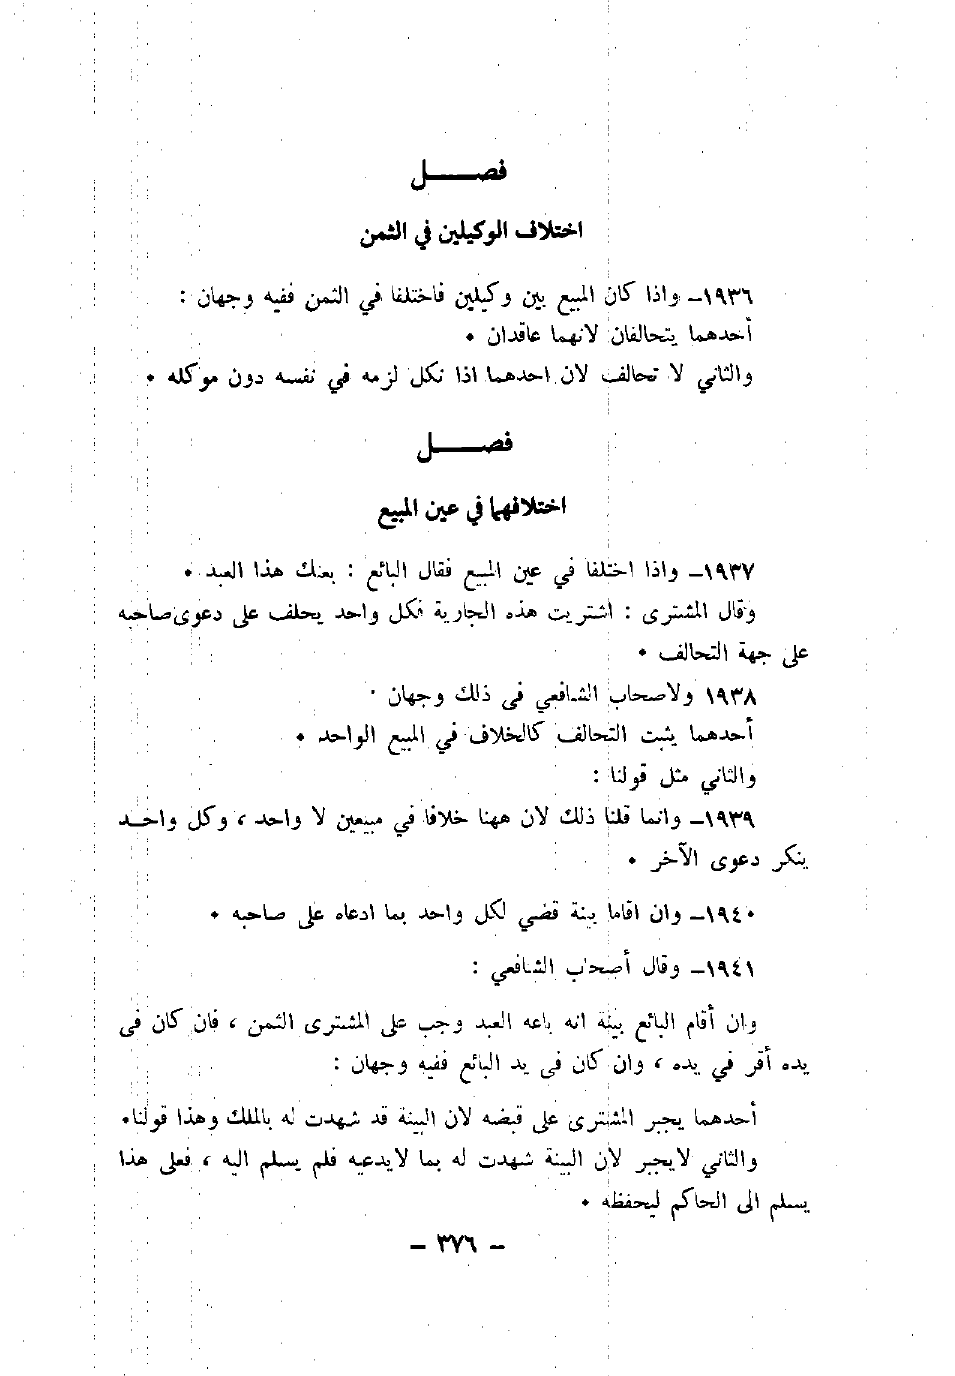 فصــــل
اختلاف الوكيلين في الثمن
١٩٣٦ـ واذا كان المبيع بين وكيلين فاختلفا في الثمن ففيه وجهان :
أحدهما يتحالفان لانهما عاقدان ٠
والثاني لا تحالف لان احدهما اذا نكل لزمه في نفسه دون موكله ٠
فصــــل
اختلافهما في عين المبيع
١٩٣٧ـ واذا اختلفا في عين المبيع فقال البائع : بعتك هذا العبد ٠
وقال المشترى : اشتريت هذه الجارية فكل واحد يحلف على دعوى صاحبه
على جهة التحالف ٠
١٩٣٨ ولاصحاب الشافعي فى ذلك وجهان ٠
أحدهما يثبت التحالف كالخلاف في المبيع الواحد ٠
والثاني مثل قولنا :
١٩٣٩ـ وانما قلنا ذلك لان ههنا خلافا في مبيعين لا واحد ، وكل واحــد
ينكر دعوى الآخر ٠
١٩٤٠ـ وان اقاما بينة قضي لكل واحد بما ادعاه على صاحبه ٠
١٩٤١ـ وقال أصحاب الشافعي :
وان أقام البائع بينة انه باعه العبد وجب على المشترى الثمن ، فان كان فى
يده أقر في يده ، وان كان فى يد البائع ففيه وجهان :
أحدهما يجبر المشترى على قبضه لان البينة قد شهدت له بالملك وهذا قولنا٠
والثاني لايجبر لأن البينة شهدت له بما لايدعيه فلم يسلم اليه ، فعلى هذا
يسلم الى الحاكم ليحفظه ٠
— ٣٧٦ —